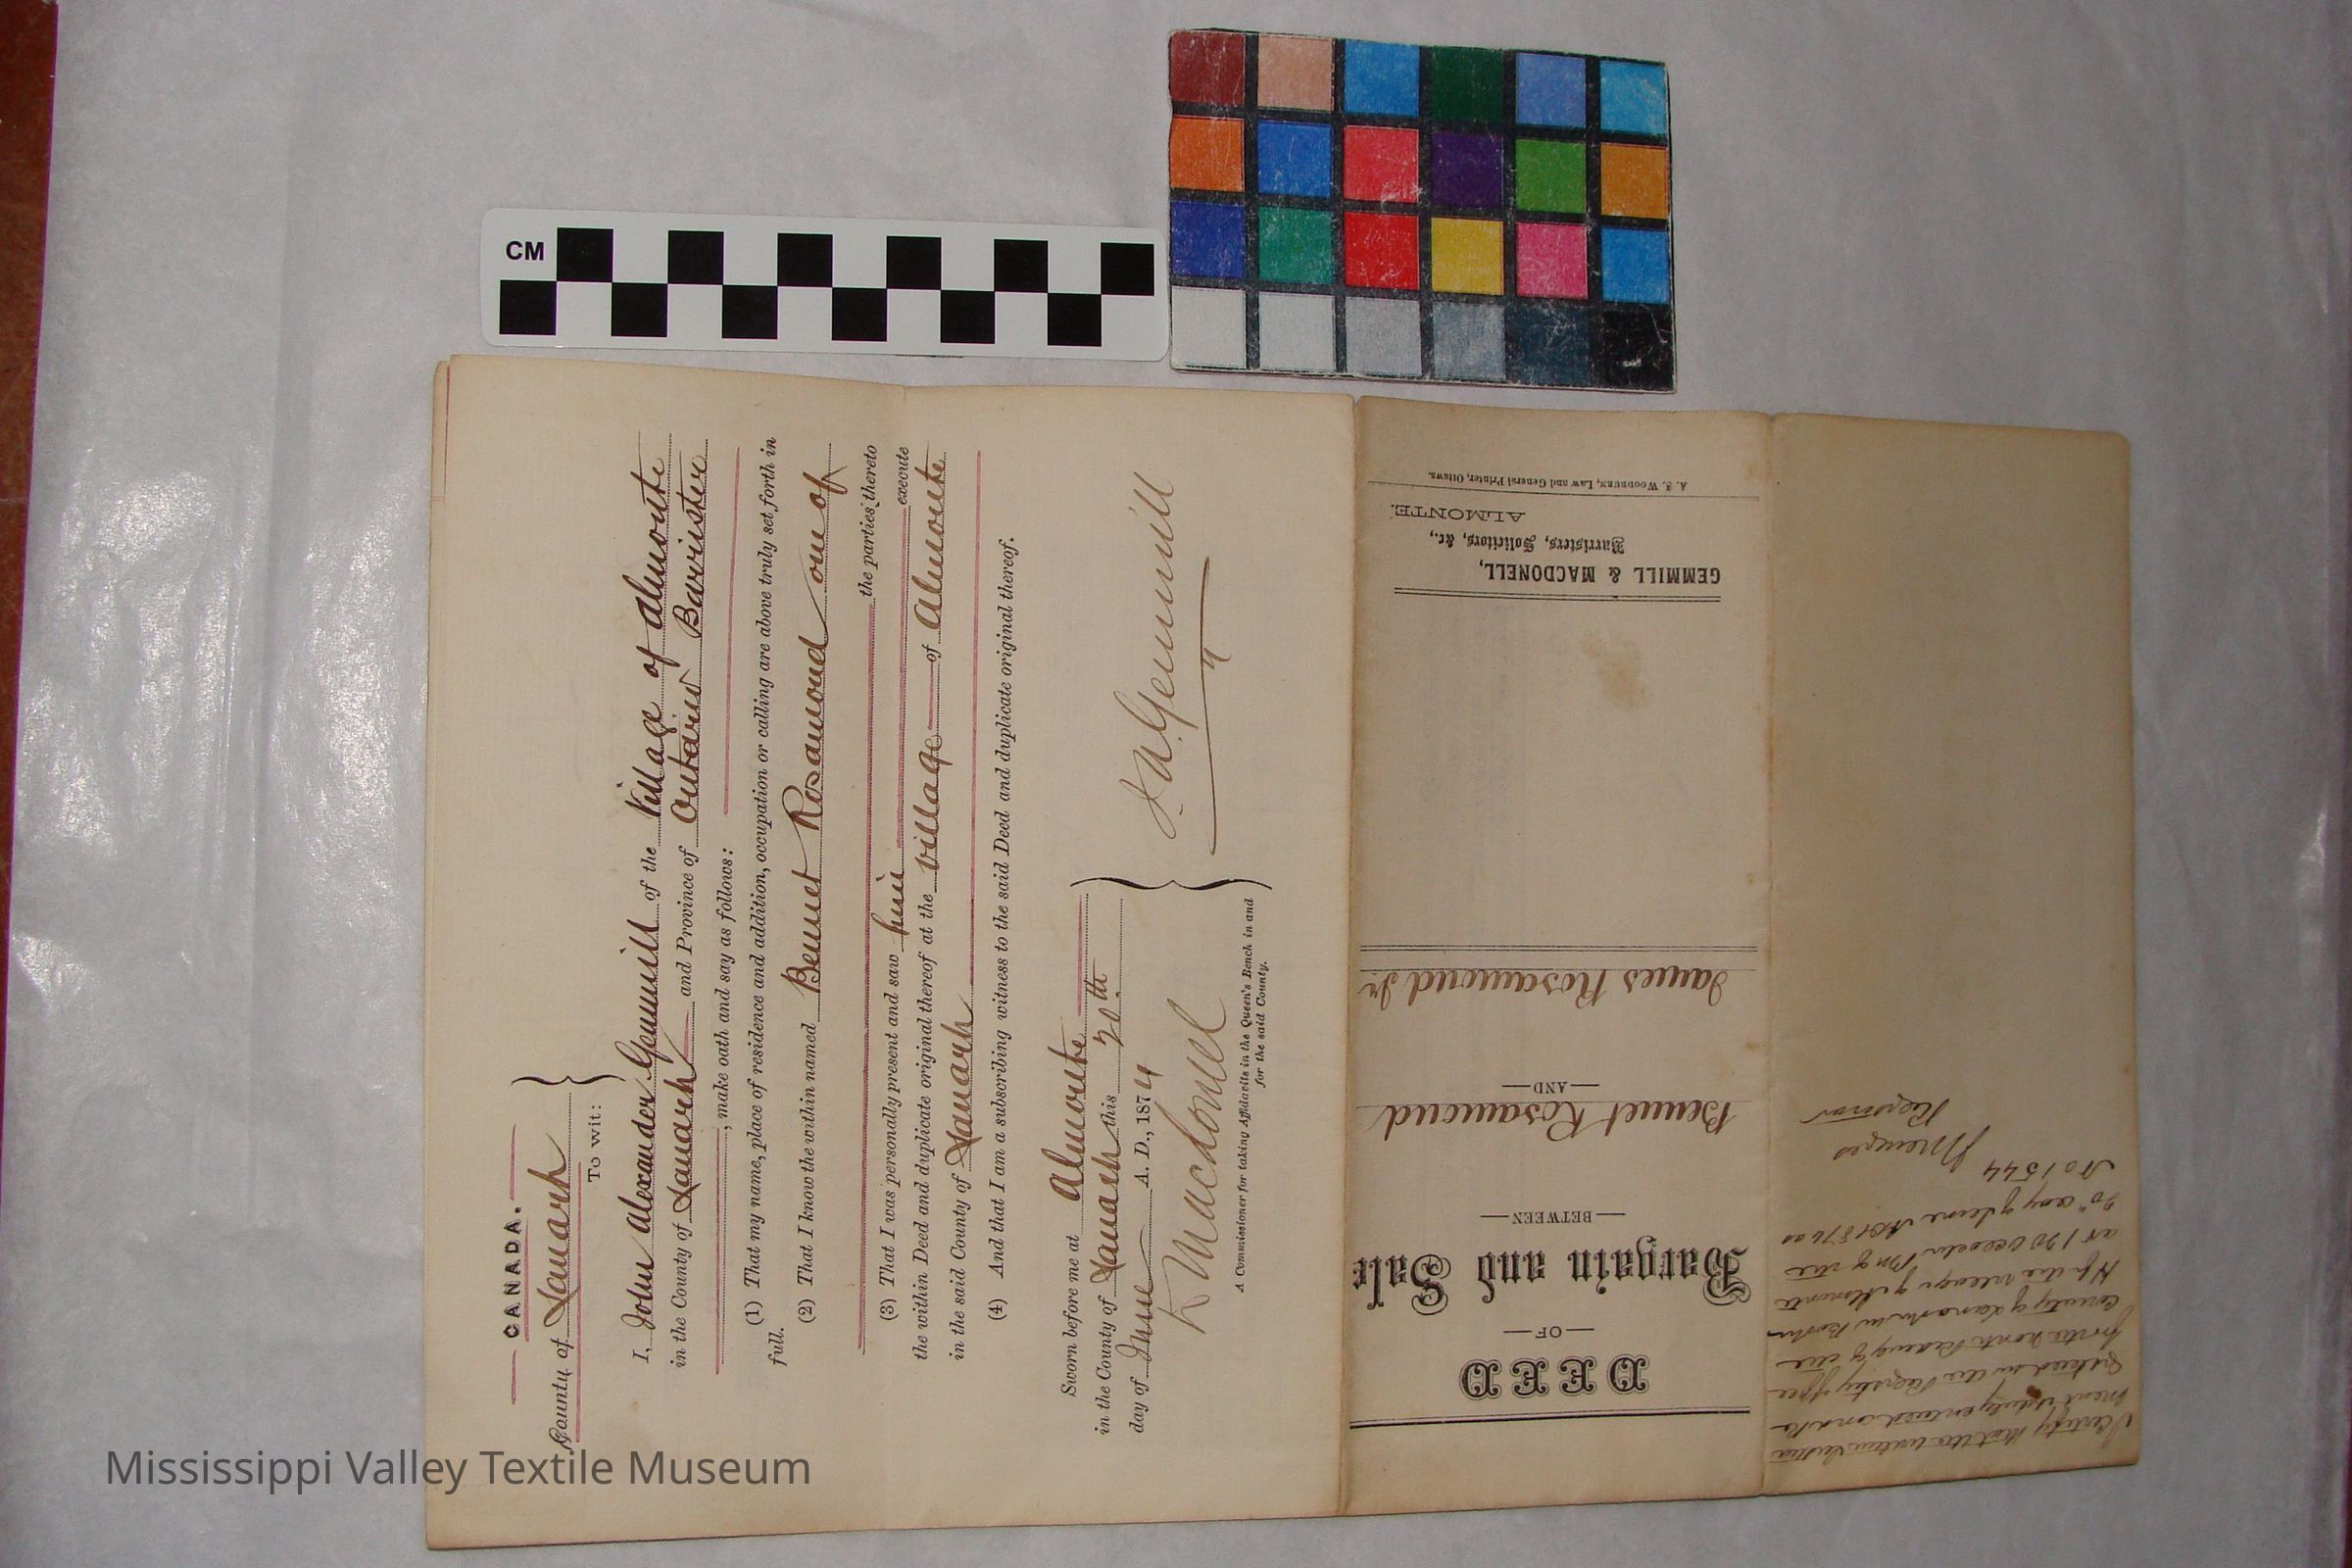 CM
CANADA.
County of Lanark
To wit:
I, John Alexander Gemmill of the Village of Almonte
in the County of Lanark and Province of Ontario Barrister
, make oath and say as follows:
(1) That my name, place of residence and addition, occupation or calling are above truly set forth in
full.
(2) That I know the within named Bennet Rosamond one of
the parties thereto
(3) That I was personally present and saw him execute
the within Deed and duplicate original thereof at the village of Almonte
in the said County of Lanark
(4) And that I am a subscribing witness to the said Deed and duplicate original thereof.
Sworn before me at Almonte
in the County of Lanark this 20th
day of June A. D., 187
J A Gemmill
Macdonell
A Commissioner for taking Affidavits in the Queen's Bench in and
for the said County.
DEED
OF
Bargain and Sale
BETWEEN
Bennet Rosamond
AND
James Rosamond Jr.
GEMMILL & MACDONELL,
Barristers, Solicitors, &c.,
ALMONTE.
A. S. Woodburn, Law and General Printer, Ottawa.
I Certify that the within Instru
ment is duly entered and Re
gistered in the Registry office
for the North Riding of the
County of Lanark in Book
H for the village of Almonte
at 1 20 o'clock PM of the
20th day of June AD 187 as
No 1544
Menzies
Registrar
Mississippi Valley Textile Museum